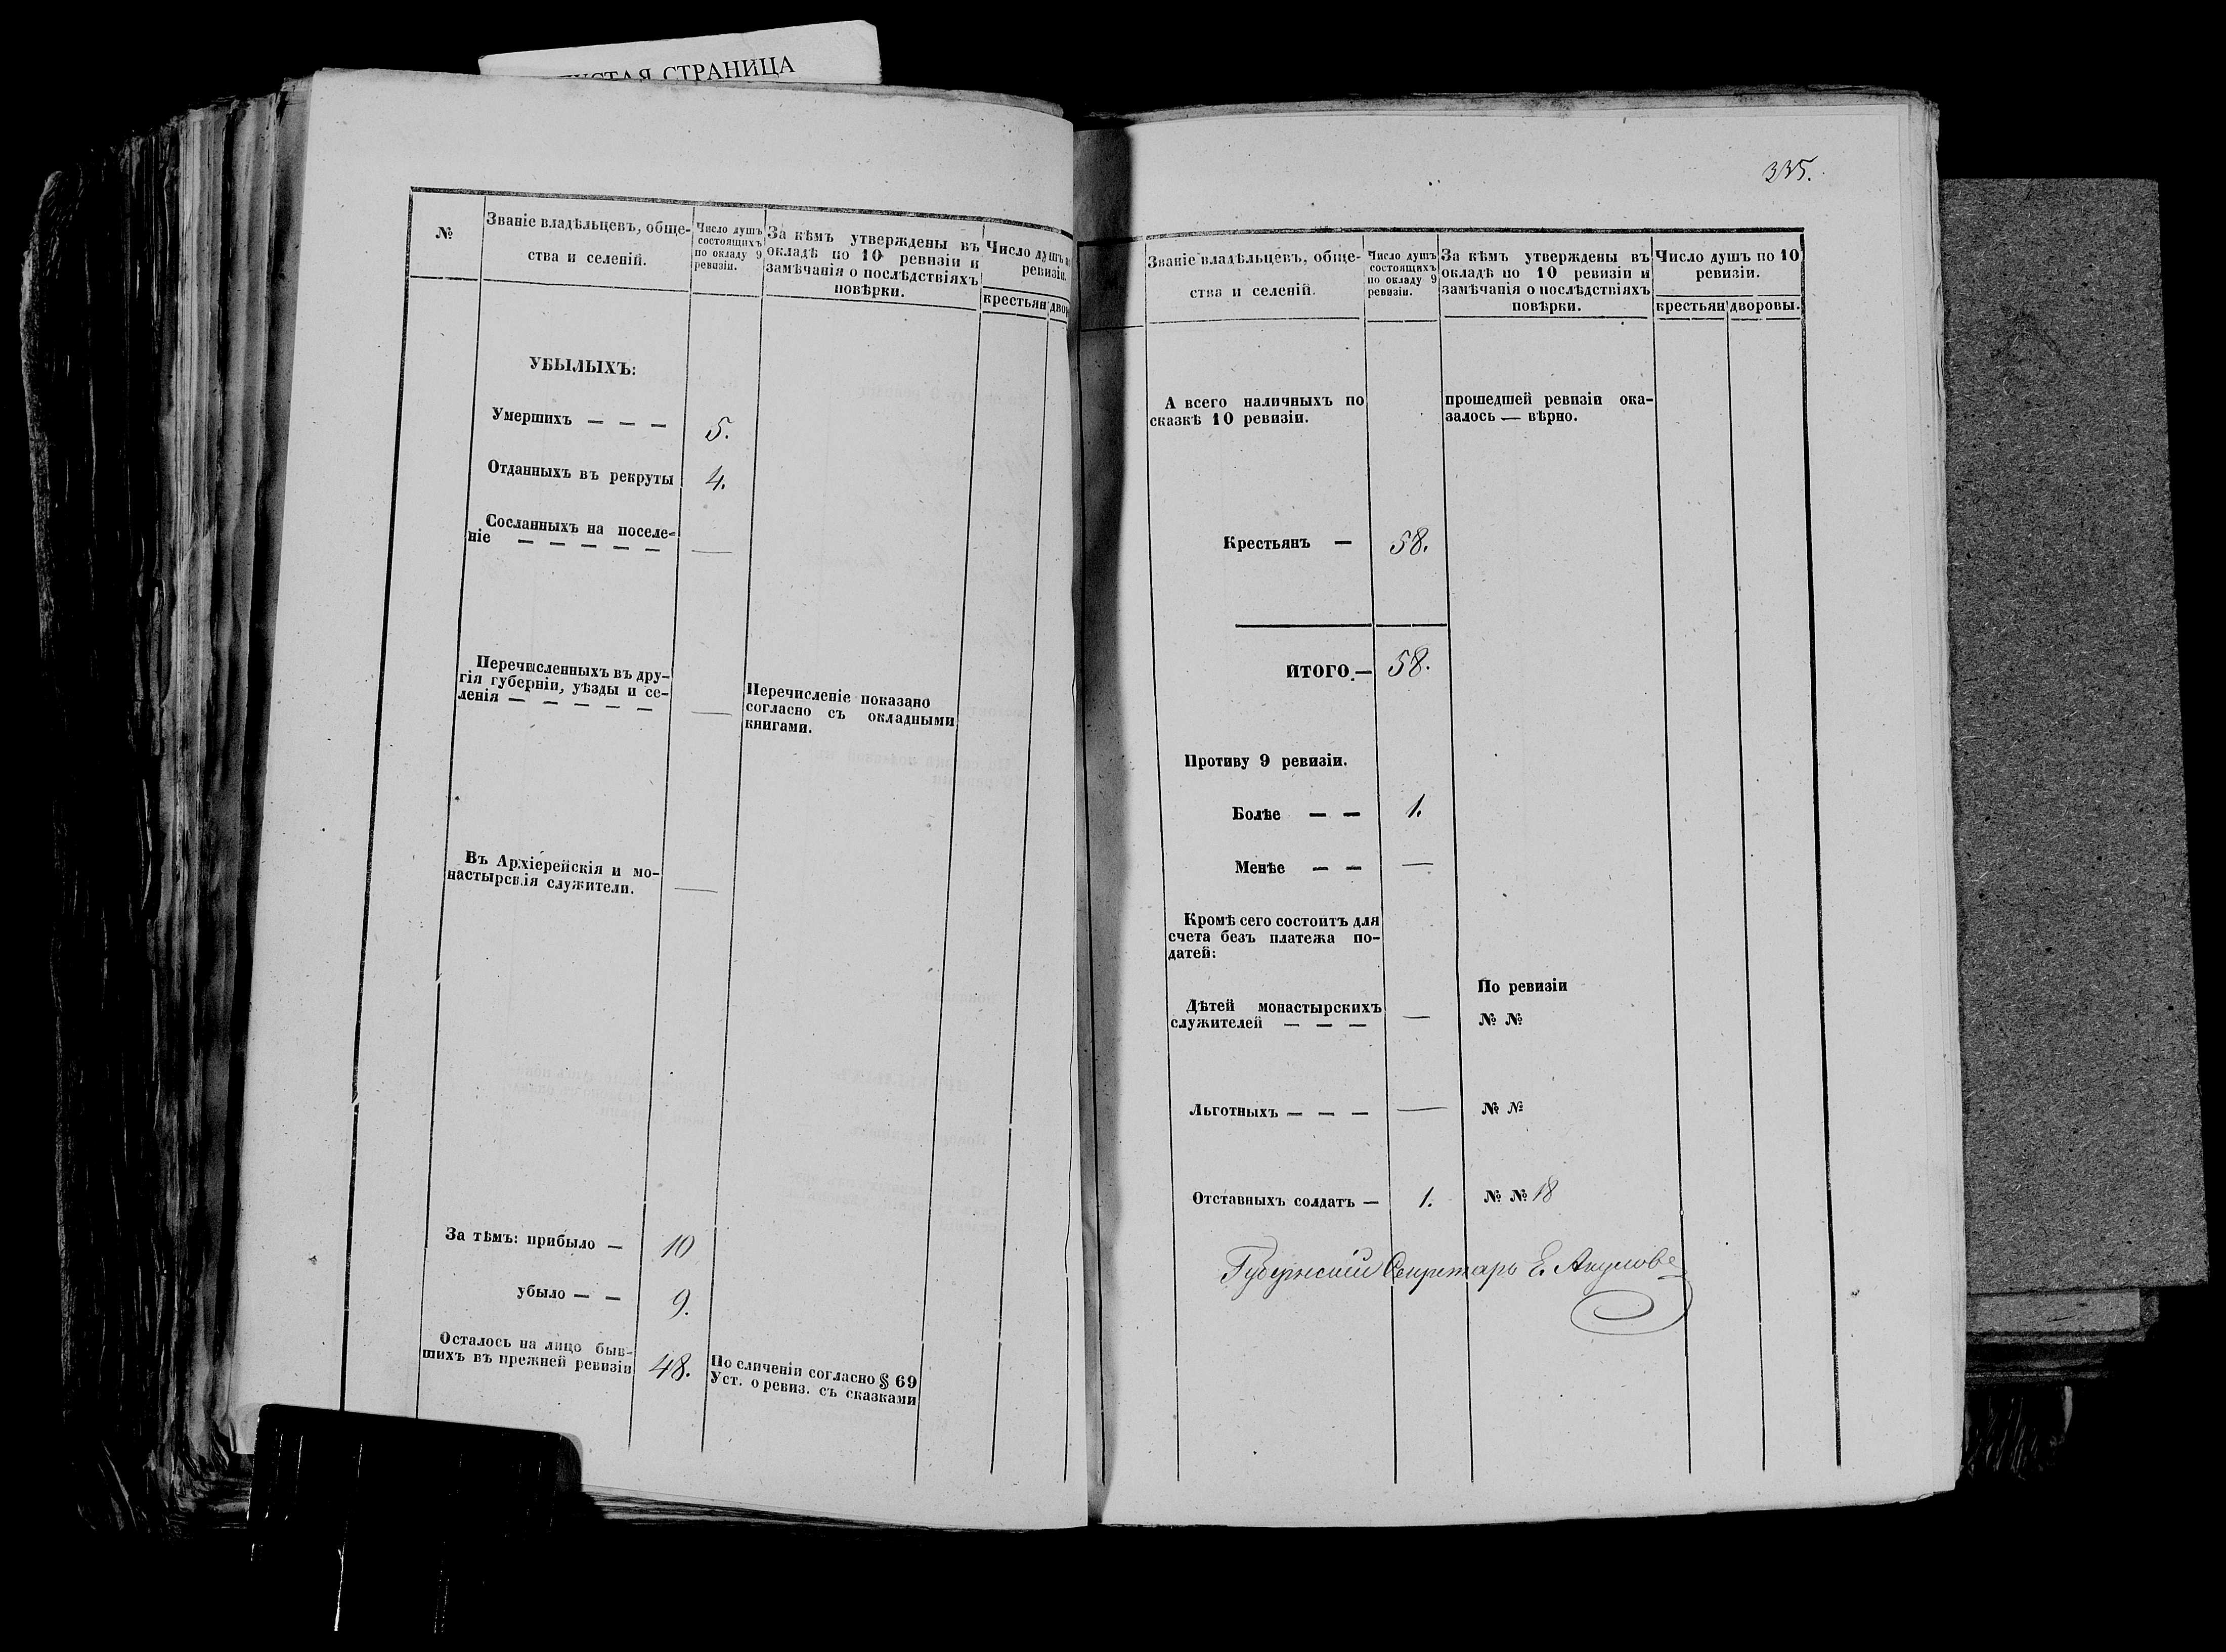 ПУСТАЯ СТРАНИЦА
№
Званіе владѣльцевъ, обще-
ства и селеній.
Число душъ
состоящихъ
по окладу 9
ревизіи.
За кѣмъ утверждены въ
окладѣ по 10 ревизіи и
замѣчанія о послѣдствіяхъ
повѣрки.
Число душъ по
ревизіи.
крестьян
двор
УБЫЛЫХЪ:
Умершихъ — — — 5.
Отданныхъ въ рекруты 4.
Сосланныхъ на поселе-
ніе — — — — — —
Перечисленныхъ въ дру-
гія губерніи, уѣзды и се-
ленія — — — — — —
Перечисленіе показано
согласно съ окладными
книгами.
Въ Архіерейскія и мо-
настырскія служители. —
За тѣмъ: прибыло — 10
убыло — — 9.
Осталось на лицо быв-
шихъ въ прежней ревизіи 48.
По сличеніи согласно § 69
Уст. о ревиз. съ сказками
335.
Званіе владѣльцевъ, обще-
ства и селеній.
Число душъ
состоящихъ
по окладу 9
ревизіи.
За кѣмъ утверждены въ
окладѣ по 10 ревизіи и
замѣчанія о послѣдствіяхъ
повѣрки.
Число душъ по 10
ревизіи.
крестьян
дворовы.
А всего наличныхъ по
сказкѣ 10 ревизіи.
прошедшей ревизіи ока-
залось — вѣрно.
Крестьянъ — 58.
ИТОГО.— 58.
Противу 9 ревизіи.
Болѣе — — 1.
Менѣе — — —
Кромѣ сего состоитъ для
счета безъ платежа по-
датей:
По ревизіи
Дѣтей монастырскихъ
служителей — — — — № №
Льготныхъ — — — — № №
Отставныхъ солдатъ — 1. № № 18
Губернскій Секретарь Е. Акуловъ